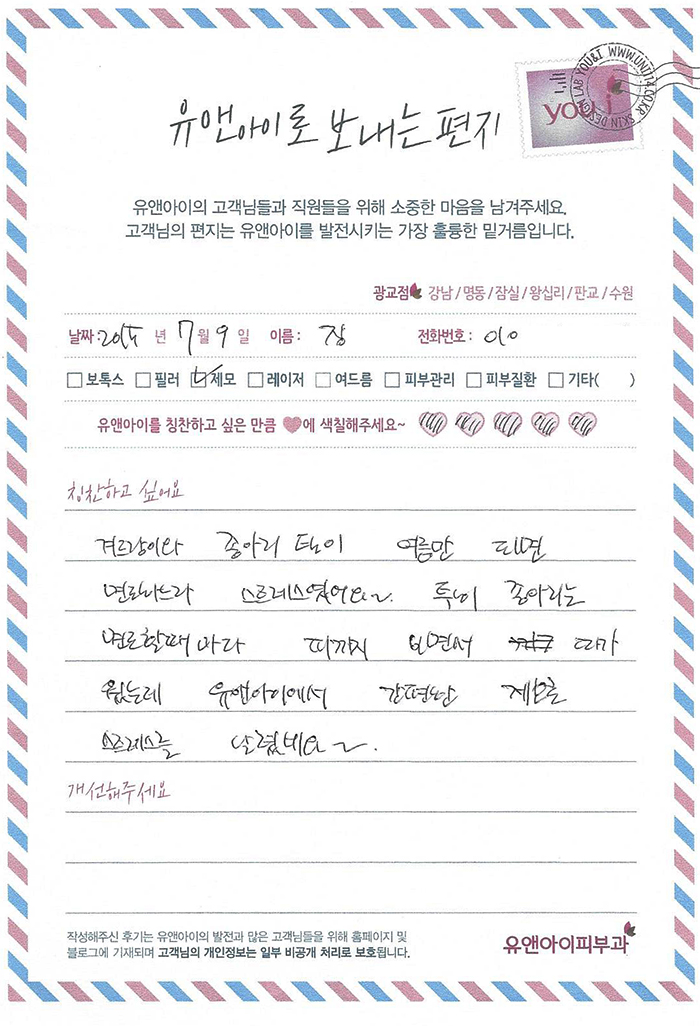 유앤아이로 보내는 편지
SKIN DESIGN LAB YOU&I WWW.UNI114.CO.KR
you i
유앤아이의 고객님들과 직원들을 위해 소중한 마음을 남겨주세요.
고객님의 편지는 유앤아이를 발전시키는 가장 훌륭한 밑거름입니다.
광교점 강남/명동/잠실/왕십리/판교/수원
날짜: 2015 년 7 월 9 일 이름: 장 전화번호: 010
보톡스 필러 제모 레이저 여드름 피부관리 피부질환 기타( )
유앤아이를 칭찬하고 싶은 만큼 에 색칠해주세요~
칭찬하고 싶어요
겨드랑이와 종아리 털이 여름만 되면
면도하느라 스트레스였어요~. 특히 종아리는
면도할때마다 피까지 보면서 따가
웠는데 유앤아이에서 간편한 제모로
스트레스를 날렸네요~.
개선해주세요
작성해주신 후기는 유앤아이의 발전과 많은 고객님들을 위해 홈페이지 및
블로그에 기재되며 고객님의 개인정보는 일부 비공개 처리로 보호됩니다.
유앤아이피부과